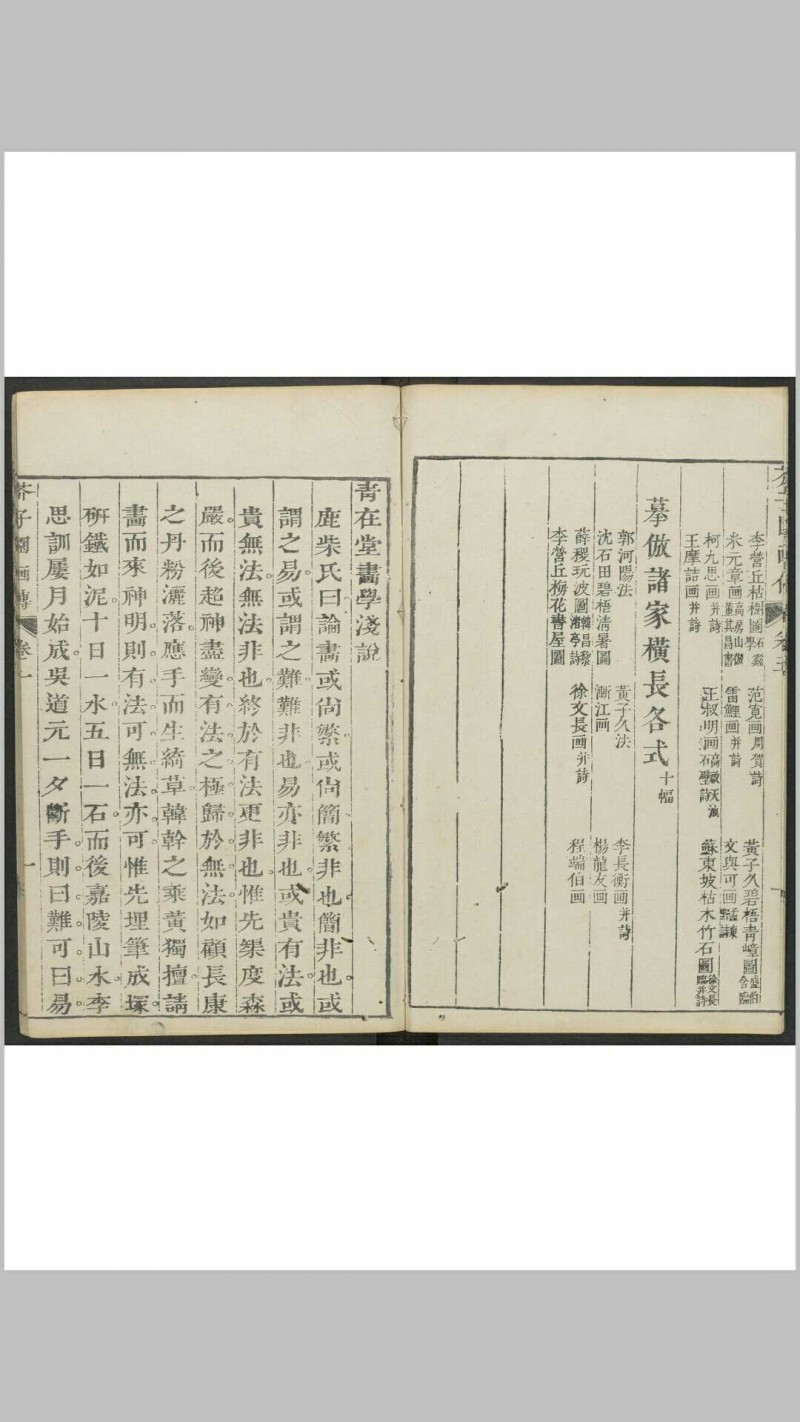 李營丘枯圖 范寬画周賀詩 黃子久碧梧青嶂圖盛伯含臨
米元章画高房山倣董其昌書 雷鯉画并詩 文與可画
柯九思画并詩 王叔明画 蘇東坡枯木竹石圖徐文長臨并詩
王摩詰画并詩
摹倣諸家橫長各式十幅
郭河陽法 黃子久法 李長衡画并詩
沈石田碧梧清暑圖 漸江画 楊龍友画
薛稷玩波圖韓昌黎渚亭詩 徐文長画并詩 程端伯画
李營丘梅花書屋圖
青在堂畵學淺說
鹿柴氏曰論畵或尚繁或尚簡繁非也簡非也或
謂之易或謂之難難非也易亦非也或貴有法或
貴無法無法非也終於有法更非也惟先榘度森
嚴。而後超神盡變有法之極歸於無法如顧長康
之丹粉灑落。應手而生綺草韓幹之乘黃獨擅。請
畵而來神明則有法可無法。亦可惟先埋筆成塚。
研鐵如泥。十日一水五日一石。而後嘉陵山水。李
思訓屢月始成。吳道元一夕斷手。則曰難可曰易
芥子園画傳 卷一 一